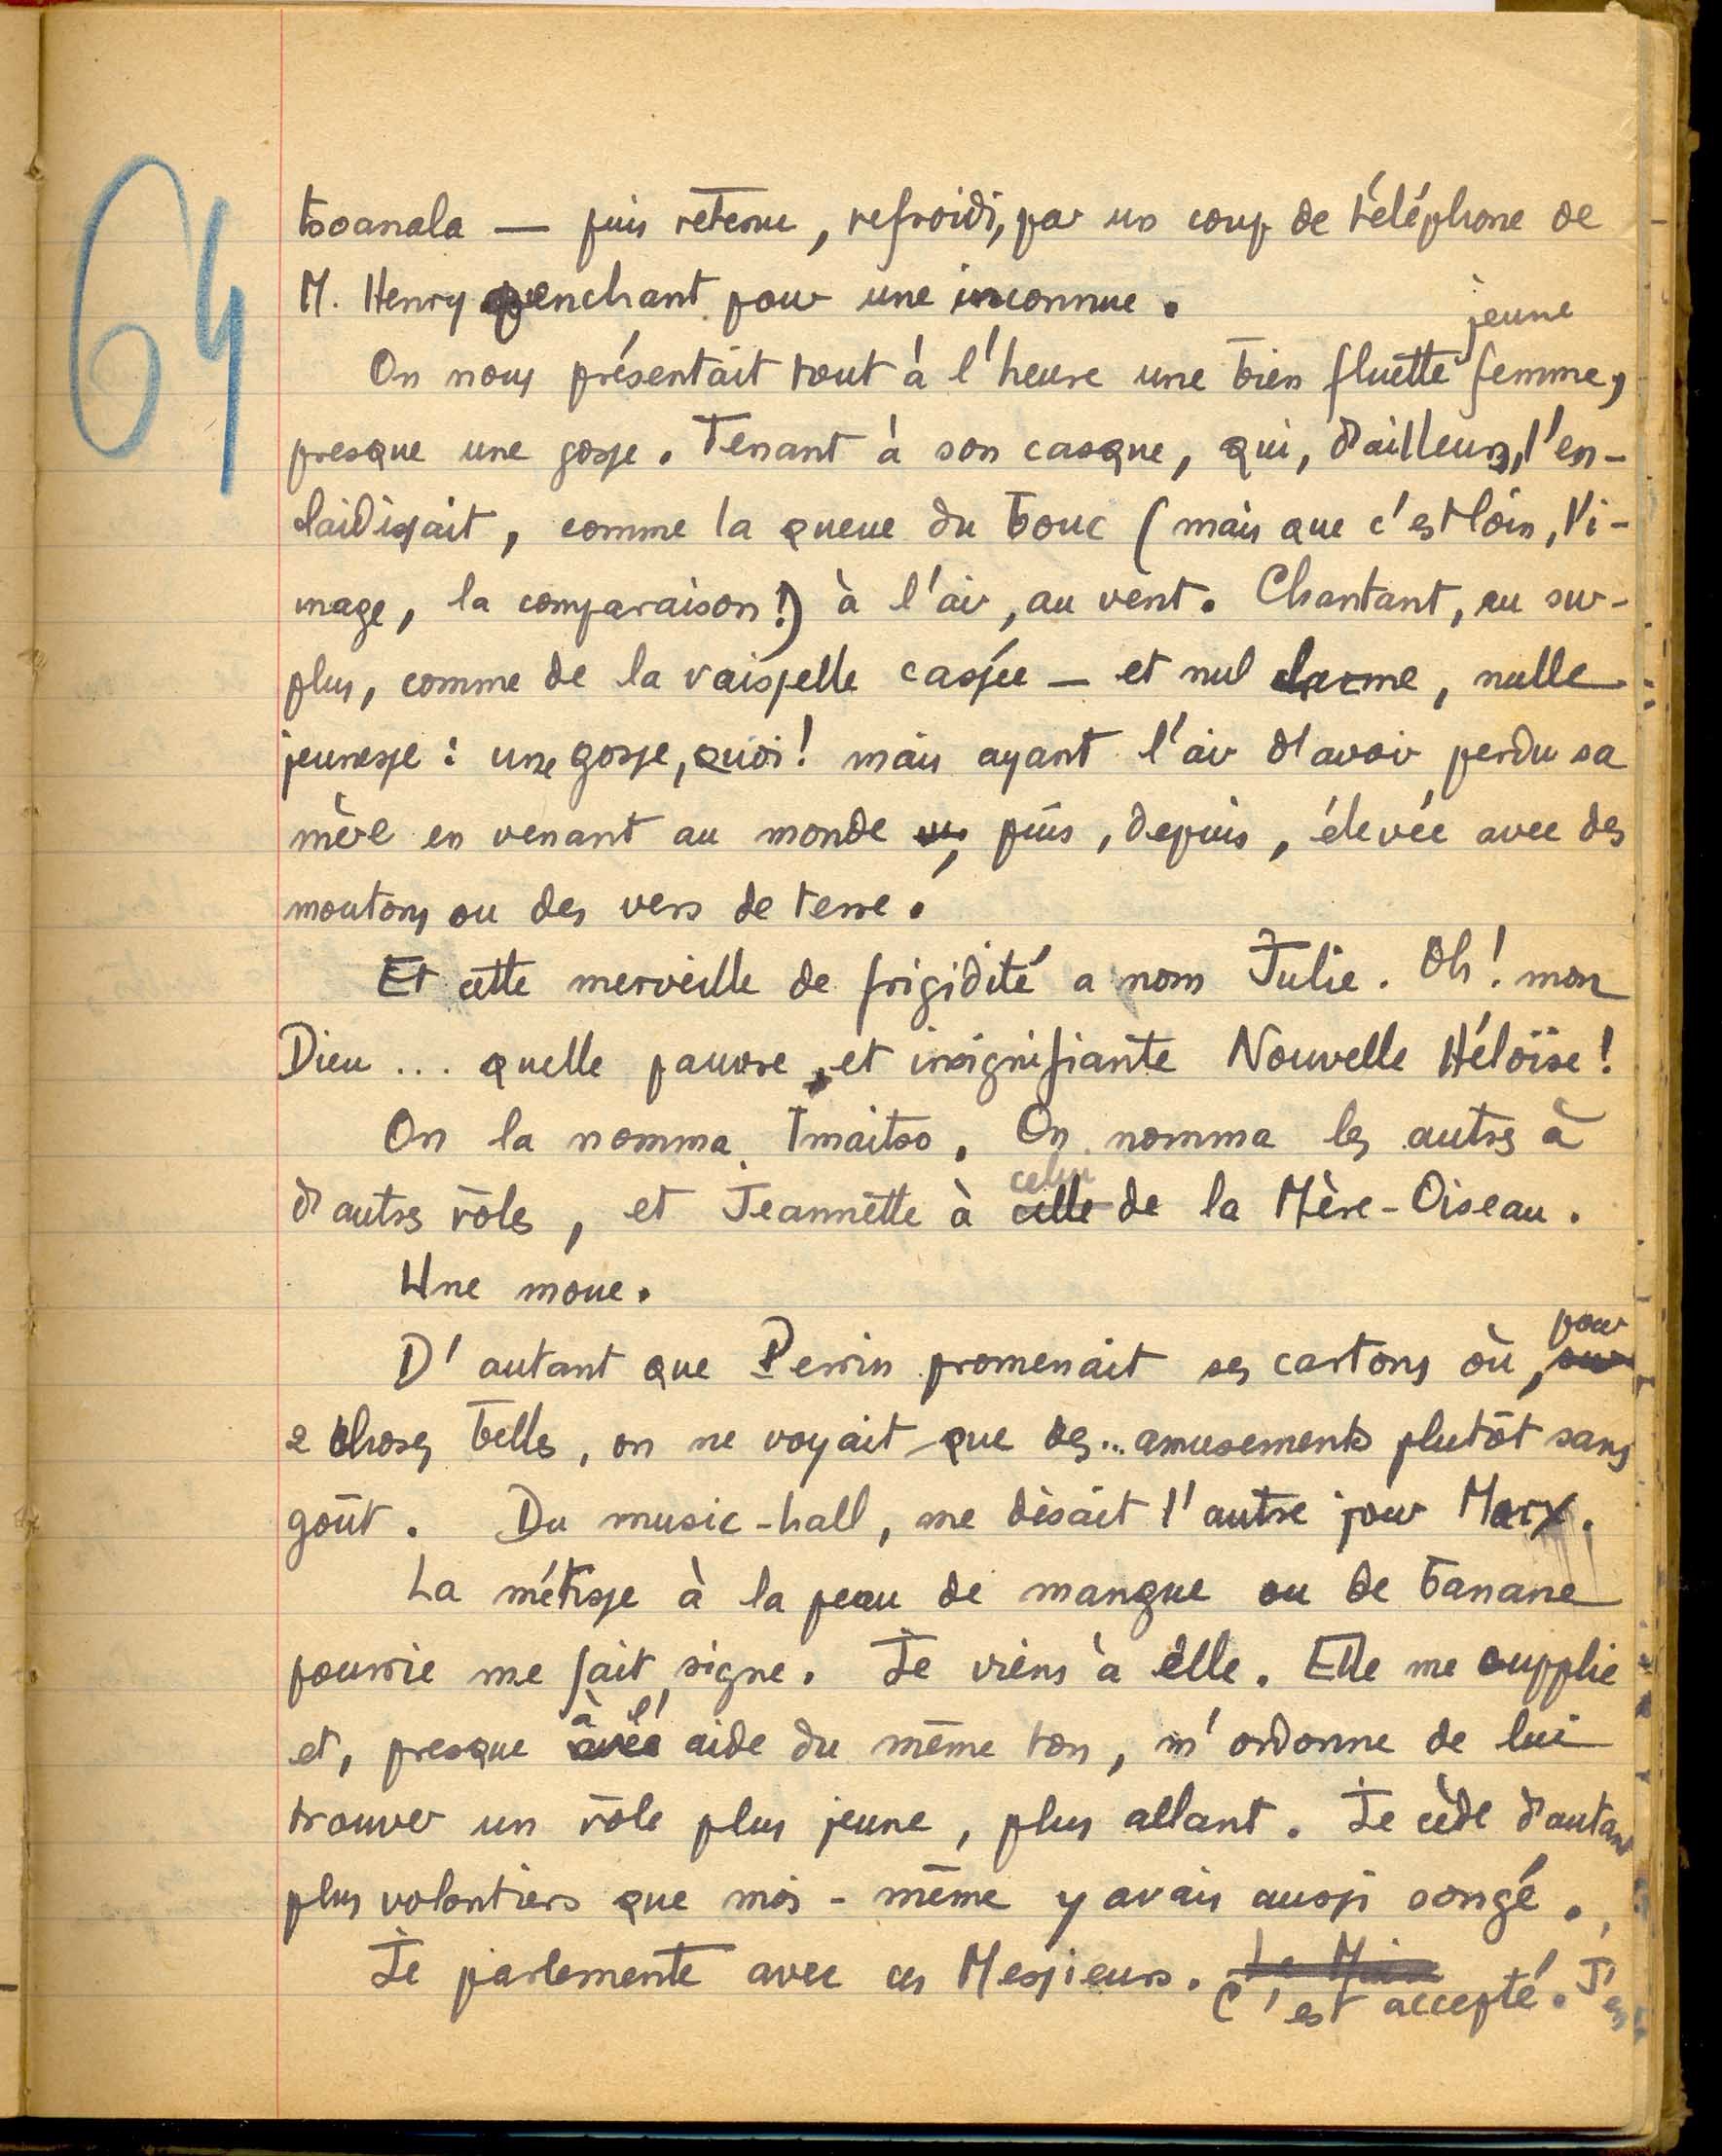 64
tsoanala — puis retenu, refroidi, par un coup de téléphone de
M. Henry penchant pour une inconnue.
jeune
On nous présentait tout à l'heure une bien fluette femme,
presque une gosse. Tenant à son casque, qui, d'ailleurs, l'en-
laidissait, comme la queue du bouc (mais que c'est loin, l'i-
mage, la comparaison!) à l'air, au vent. Chantant, au sur-
plus, comme de la vaisselle cassée — et nul charme, nulle
jeunesse : une gosse, quoi! mais ayant l'air d'avoir perdu sa
mère en venant au monde, puis, depuis, élevée avec des
moutons ou des vers de terre.
Et cette merveille de frigidité a nom Julie. Oh! mon
Dieu ... quelle pauvre et insignifiante Nouvelle Héloïse!
On la nomma Imaitso. On nomma les autres à
celui
d'autres rôles, et Jeannette à celle de la Mère-Oiseau.
Une moue.
pour
D'autant que Perrin promenait ses cartons où, sur
2 choses belles, on ne voyait que des... amusements plutôt sans
goût. Du music-hall, me disait l'autre jour Marx.
La métisse à la peau de mangue ou de banane
pourrie me fait signe. Je viens à elle. Elle me supplie
à l'
et, presque avec aide du même ton, m'ordonne de lui
trouver un rôle plus jeune, plus allant. Je cède d'autant
plus volontiers que moi-même y avais aussi songé.
Je parlemente avec ces Messieurs. C'est accepté. J'en